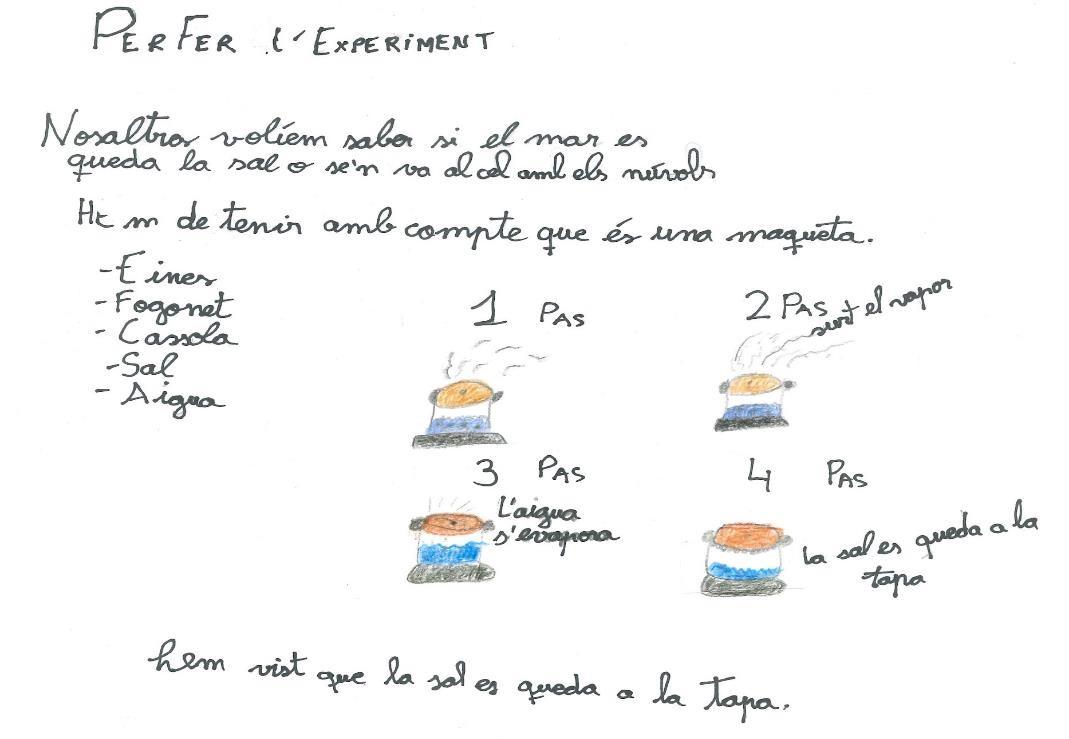 PER FER L'EXPERIMENT
Nosaltres volíem saber si el mar es
queda la sal o se'n va al cel amb els núvols
Hem de tenir amb compte que és una maqueta.
- Eines
- Fogonet
- Cassola
- Sal
- Aigua
1 PAS
2 PAS
surt el vapor
3 PAS
L'aigua
s'evapora
4 PAS
la sal es queda a la
tapa
hem vist que la sal es queda a la Tapa.